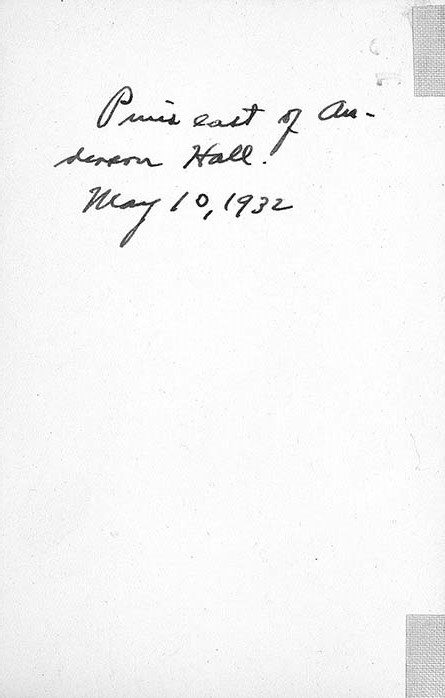 Pines east of An-
derson Hall.
May 10, 1932